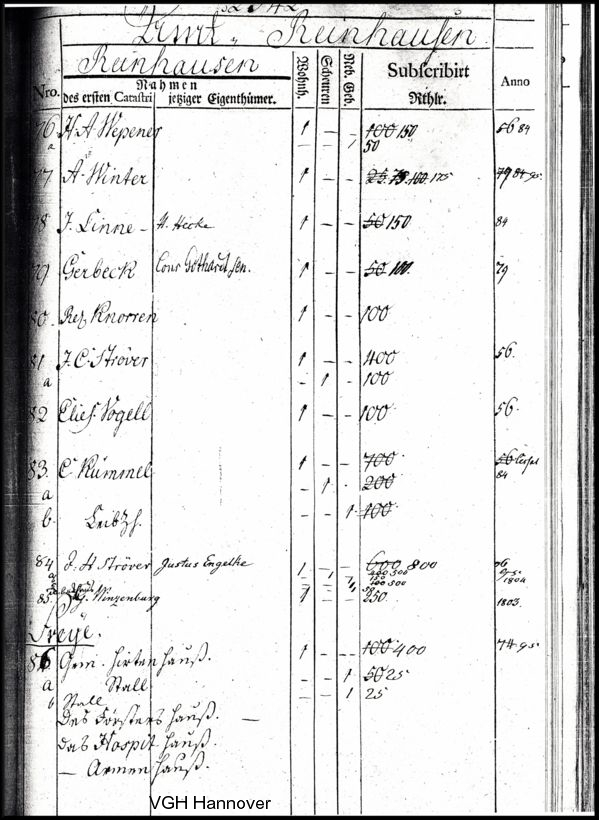 Amt Reinhausen
Reinhausen
Nro. Nahmen des ersten Catastri jetziger Eigenthümer. Wohnh. Scheuren Neb. Geb. Subscribirt Rthlr. Anno
76 H A Wepener 1 – – 100 150 56 84
a – – 1 50
77 A. Winter 1 – – 25. 75. 100. 175 79 84 95
78 J. Linne – H. Hecke 1 – – 50 150 84
79 Gerbeck Conr Gothardt sen. 1 – – 50 100. 79
80. Knorren 1 – – 100
81 J. C. Ströver 1 – – 400 56.
a – 1 – 100
82 Elies. Vogell 1 – – 100 56
83. C Kümmel 1 – – 700 56
a – 1 – 200 84
b. Leibzh. 1 100
84 J. H Ströver Justus Engelke 1 – – 600 800
1804
85. Winzenburg 1 – – 250 1803.
Freye.
86 Gem. Hirten Hauß. 1 – – 100 400 74 95
a Stall – – 1 50 25
b Stall – – 1 25
Des Försters Hauß. –
das Hospit Hauß.
– Armen Hauß.
VGH Hannover